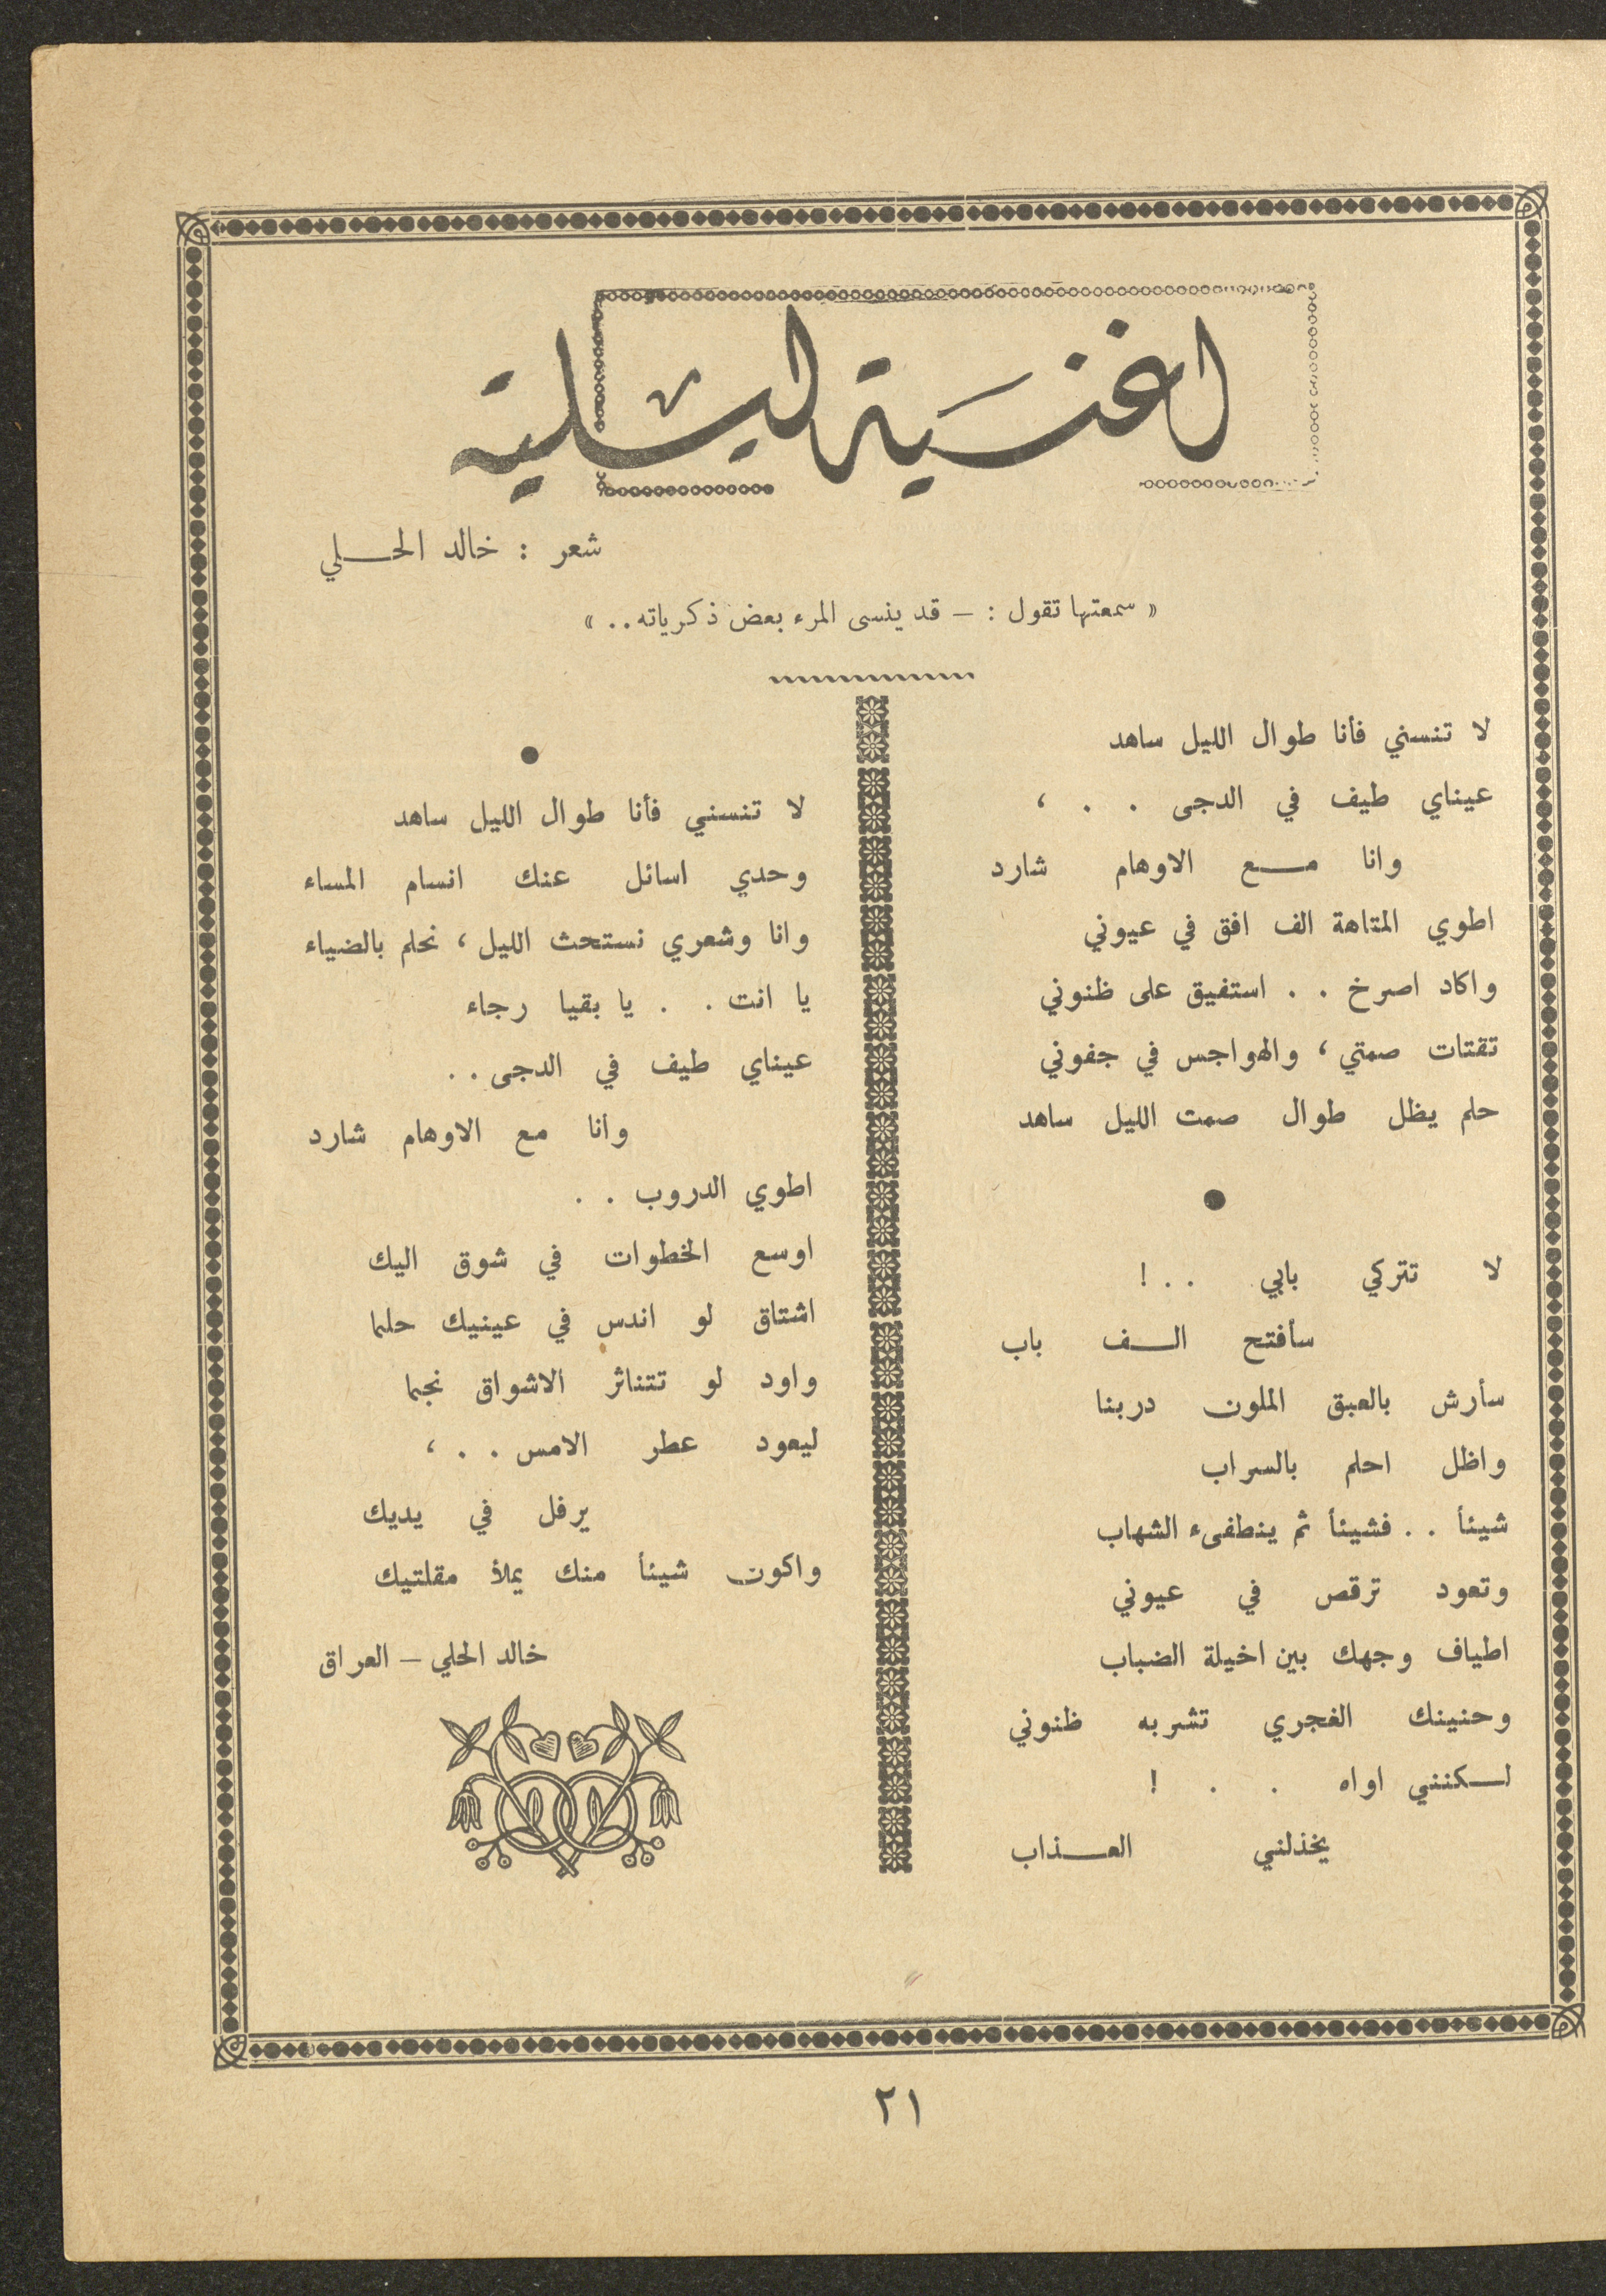 اغنية ليلية
شعر : خالد الحلي
« سمعتها تقول : – قد ينسى المرء بعض ذكرياته . . »
لا تنسني فأنا طوال الليل ساهد
عيناي طيف في الدجى . . ،
وانا مع الاوهام شارد
اطوي المتاهة الف افق في عيوني
واكاد اصرخ . . استفيق على ظنوني
تقتات صمتي ، والهواجس في جفوني
حلم يظل طوال صمت الليل ساهد
●
لا تتركي بابي . . !
سأفتح الف باب
سأرش بالعبق الملون دربنا
واظل احلم بالسراب
شيئأ . . فشيئأ ثم ينطفىء الشهاب
وتعود ترقص في عيوني
اطياف وجهك بين اخيلة الضباب
وحنينك الفجري تشربه ظنوني
لكنني اواه . . !
يخذلني العذاب
●
لا تنسني فأنا طوال الليل ساهد
وحدي اسائل عنك انسام المساء
وانا وشعري نستحث الليل ، نحلم بالضياء
يا انت . . يا بقيا رجاء
عيناي طيف في الدجى . .
وأنا مع الاوهام شارد
اطوي الدروب . .
اوسع الخطوات في شوق اليك
اشتاق لو اندس في عينيك حلما
واود لو تتناثر الاشواق نجما
ليعود عطر الامس . . ،
يرفل في يديك
واكون شيئأ منك يملأ مقلتيك
خالد الحلي – العراق
٢١